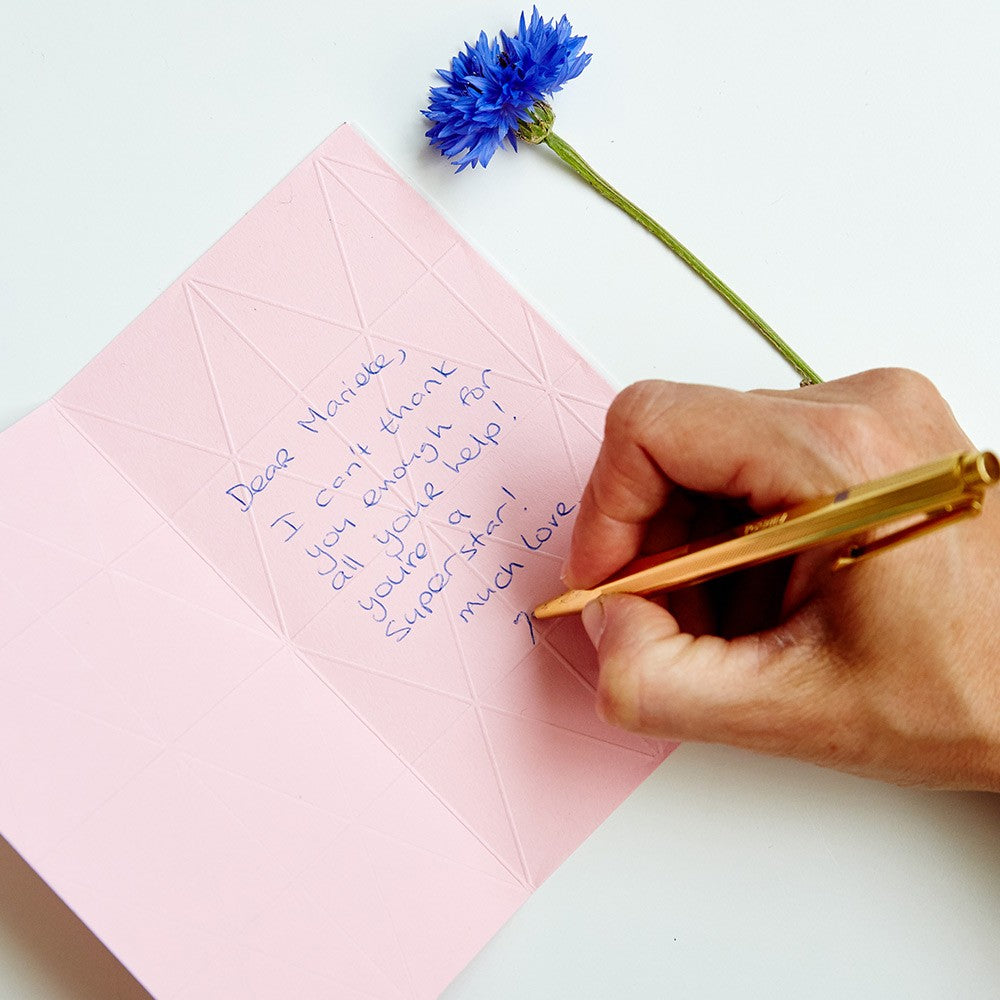 Dear Marieke,
I can't thank
you enough for
all your help!
you're a
superstar!
much love